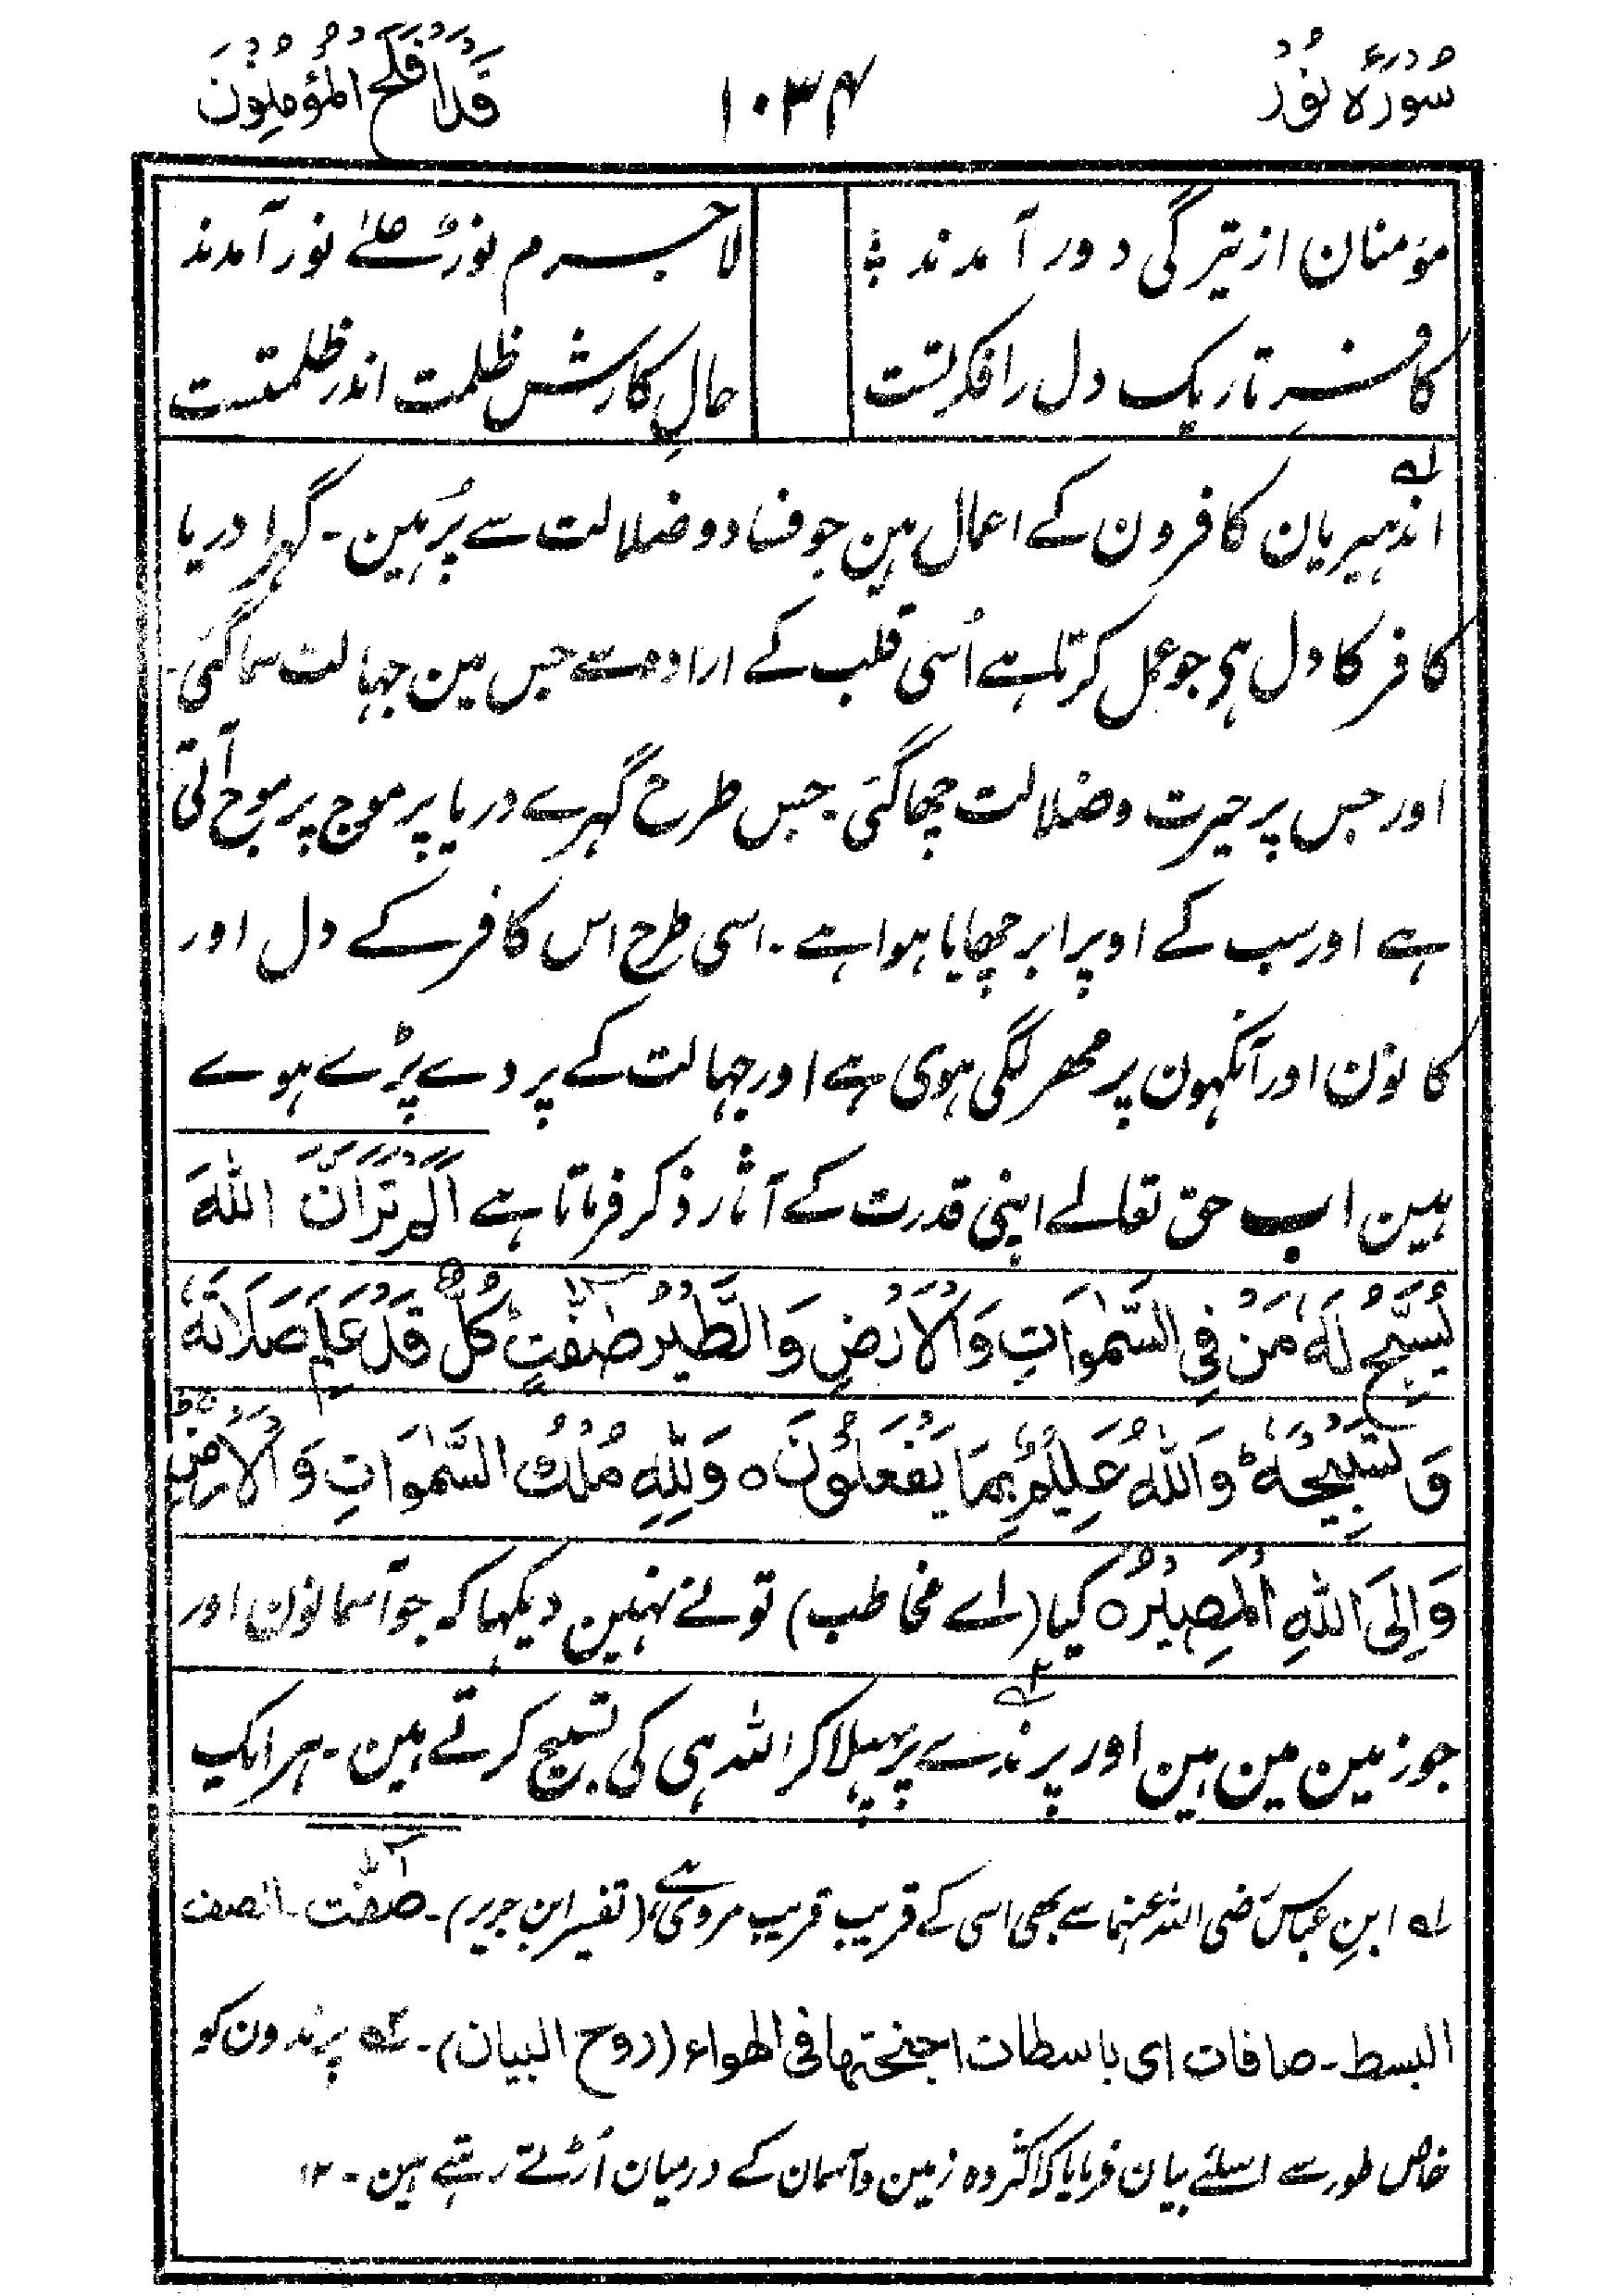 سُوْرَۂ نُوْرُ
۱۰۳۴
قَدْاَفْلَحَ الْمُؤْمِنُوْنَ
مؤمنان از تیرگی دور آمدند ؛ لاجرم نورٌ علےٰ نور آمدند
کافرِ تاریک دل را فکرتست حالِ کارش ظلمت اندر ظلمتست
۱؎
اندہیریان کافرون کے اعمال ہین جو فساد و ضلالت سے پُر ہین ۔ گہرا دریا
کافر کا دل ہی جو عمل کرتا ہے اُسی قلب کے ارادہ سے جس مین جہالت سما گئی ۔
اور جس پر حیرت و ضلالت چھا گئی ۔ جس طرح گہرے دریا پر موج پر موج آتی
ہے اور سب کے اوپر ابر چھایا ہوا ہے ۔ اسی طرح اس کافر کے دل اور
کانون اور آنکہون پر مہر لگی ہوی ہے اور جہالت کے پردے پڑے ہوے
ہین اب حق تعالے اپنی قدرت کے آثار ذکر فرماتا ہے اَلَمْ تَرَ اَنَّ اللّٰهَ
یُسَبِّحُ لَهٗ مَنْ فِی السَّمٰوَاتِ وَالْاَرْضِ وَالطَّیْرُ صٰٓفّٰتٍ کُلٌّ قَدْ عَلِمَ صَلَاتَهٗ
وَتَسْبِیْحَهٗ ؕ وَاللّٰهُ عَلِیْمٌۢ بِمَا یَفْعَلُوْنَ ۝ وَلِلّٰهِ مُلْكُ السَّمٰوَاتِ وَالْاَرْضِ ۚ
وَاِلَی اللّٰهِ الْمَصِیْرُ ۝ کیا (اے مخاطب) تونے نہین دیکہا کہ جو آسمانون اور
جو زمین مین ہین اور پرندے ۲؎ پر پہیلا کر اللہ ہی کی تسبیح کرتے ہین ۔ ہر ایک
۱؎ ابنِ عباس رضی اللہ عنہما سے بھی اسی کے قریب قریب مروی ہے (تفسیر ابن جریر) ۔ صٰٓفّٰت ۔ الصف
البسط ۔ صافات ای باسطات اجنحتہا فی الہواء (روح البیان) ۔ ۲؎ پرندون کو
خاص طور سے اسلئے بیان فرمایا کہ اکثر وہ زمین و آسمان کے درمیان اُڑتے رہتے ہین ۔ ۱۲